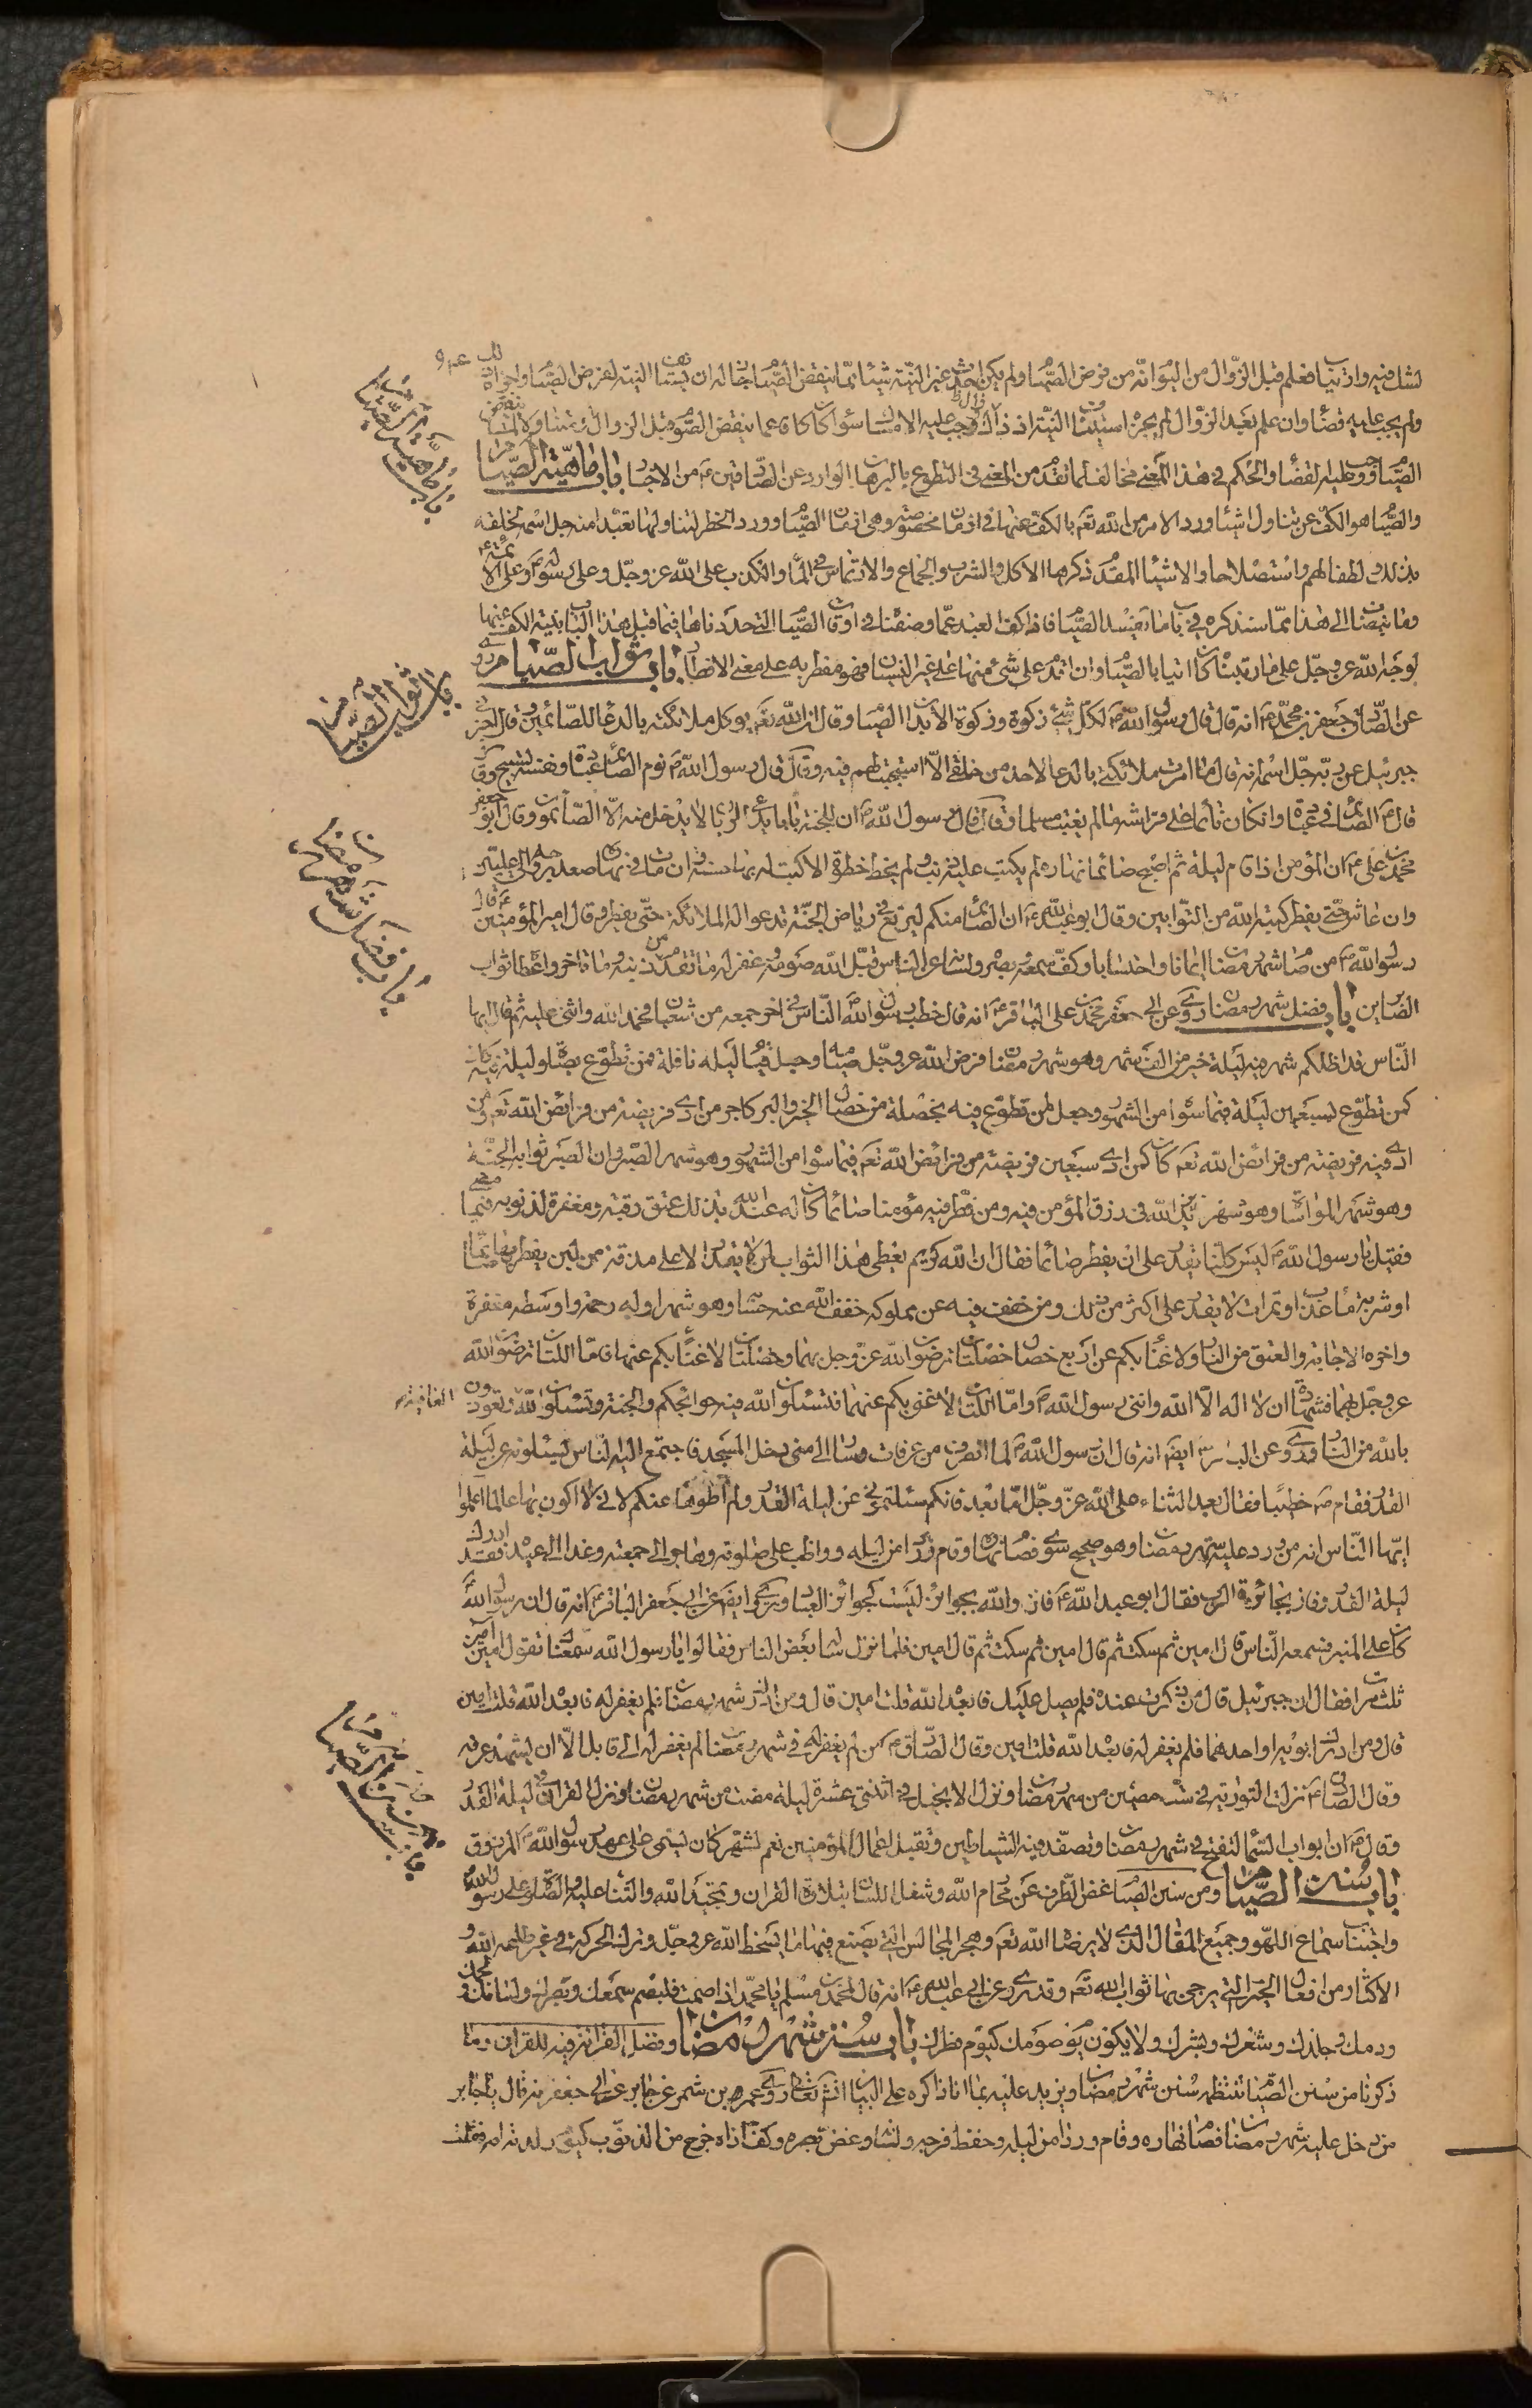 لشك فيه وارتياب فعلم قبل الزوال من اليوم انه من فرض الصيام ولم يكن احدث غير النية شيئا مما ينقض الصيام جاز له ان يستانف النية لفرض الصيام واجزاه ذلك
ولم يجب عليه قضاء وان علم بعد الزوال لم يجزه استيناف النية اذ ذاك ووجب عليه الامساك سواء كان كافا عما ينقض الصوم قبل الزوال او متناولا لما ينقض
الصيام ووجب عليه القضاء والحكم في هذا المعنى مخالف لما تقدم من المعنى في التطوع بالبرهان الوارد عن الصادقين ع من الاخبار باب ماهية الصيام
والصيام هو الكف عن تناول اشياء ورد الامر من الله تع بالكف عنها في ازمان مخصوصة وهي ازمان الصيام وورد الحظر لتناولها تعبدا منه جل اسمه لخلقه
بذلك لطفا لهم واستصلاحا والاشياء المقدم ذكرها الاكل والشرب والجماع والارتماس في الماء والكذب على الله عز وجل وعلى رسوله ص وعلى الائمة ع
وما ينضاف الى هذا مما سنذكره في باب ما يفسد الصيام فاذا كف العبد عما وصفناه في اوقات الصيام التي حددناها فيما قبل هذا الباب بنية الكف عنها
لوجه الله عز وجل على ما رتبناه كان اتيا بالصيام وان اقدم على شئ منها على غير النسيان فهو مفطر به على معنى الافطار باب ثواب الصيام روى
عن الصادق جعفر بن محمد ع انه قال قال رسول الله ص لكل شئ زكوة وزكوة الابدان الصيام وقال ان الله تع يوكل ملائكته بالدعاء للصائمين وقال اخبرني
جبرئيل عن ربه جل اسمه انه قال ما امرت ملائكتي بالدعاء لاحد من خلقي الا استجبت لهم فيه وقال قال رسول الله ص نوم الصائم عبادة ونفسه تسبيح وق
قال ص الصائم في عبادة وان كان نائما على فراشه ما لم يغتب مسلما وقال قال رسول الله ص ان للجنة بابا يدعى الريان لا يدخل منه الا الصائمون وقال ابو جعفر
محمد بن علي ع ان المؤمن اذا قام ليله ثم اصبح صائما نهاره لم يكتب عليه ذنب ولم يخط خطوة الا كتب له بها حسنة وان مات في نهاره صعد بروحه الى عليين
وان عاش حتى يفطر كتبه الله من التوابين وقال ابو عبد الله ع ان الصائم منكم ليرتع في رياض الجنة تدعو له الملائكة حتى يفطر وقال امير المؤمنين ع قال
رسول الله ص من صام شهر رمضان ايمانا واحتسابا وكف سمعه وبصره ولسانه عن الناس قبل الله صومه وغفر له ما تقدم من ذنبه وما تاخر واعطاه ثواب
الصابرين باب فضل شهر رمضان روى عن ابي جعفر محمد بن علي الباقر ع انه قال خطب رسول الله ص الناس في اخر جمعة من شعبان فحمد الله واثنى عليه ثم قال ايها
الناس قد اظلكم شهر فيه ليلة خير من الف شهر وهو شهر رمضان فرض الله عز وجل صيامه وجعل قيام ليله نافلة فمن تطوع بصلوة ليلة فيه كان
كمن تطوع بسبعين ليلة فيما سواه من الشهور وجعل لمن تطوع فيه بخصلة من خصال الخير والبر كاجر من ادى فريضة من فرائض الله تع ومن
ادى فيه فريضة من فرائض الله تع كان كمن ادى سبعين فريضة من فرائض الله تع فيما سواه من الشهور وهو شهر الصبر وان الصبر ثوابه الجنة
وهو شهر المواساة وهو شهر يزيد الله في رزق المؤمن فيه ومن فطر فيه مؤمنا صائما كان له عند الله بذلك عتق رقبة ومغفرة لذنوبه فيما مضى
فقيل يا رسول الله ص ليس كلنا يقدر على ان يفطر صائما فقال ان الله كريم يعطي هذا الثواب لمن لا يقدر الا على مذقة من لبن يفطر بها صائما
او شربة ماء عذب او تمرات لا يقدر على اكثر من ذلك ومن خفف فيه عن مملوكه خفف الله عنه حسابه وهو شهر اوله رحمة واوسطه مغفرة
واخره الاجابة والعتق من النار ولا غناء بكم عن اربع خصال خصلتان ترضون الله عز وجل بهما وخصلتان لا غناء بكم عنهما فاما اللتان ترضون الله
عز وجل بهما فشهادة ان لا اله الا الله وانني رسول الله ص واما اللتان لا غنى بكم عنهما فتسئلون الله فيه حوائجكم والجنة وتسئلون الله العافية وتعوذون
بالله من النار وروى عن الباقر ع ايضا انه قال ان رسول الله ص لما انصرف من عرفات وسار الى منى دخل المسجد فاجتمع اليه الناس يسئلونه عن ليلة
القدر فقام ص خطيبا فقال بعد الثناء على الله عز وجل اما بعد فانكم سئلتموني عن ليلة القدر ولم اطوها عنكم لاني لا اكون بها عالما اعلموا
ايها الناس انه من ورد عليه شهر رمضان وهو صحيح سوي فصام نهاره وقام وردا من ليله وواظب على صلوته وهاجر الى جمعته وغدا الى عيده فقد ادرك
ليلة القدر وفاز بجائزة الرب فقال ابو عبد الله ع فاز والله بجوائز ليست كجوائز العباد وروى ايضا عن ابي جعفر الباقر ع انه قال ان رسول الله ص
كان على المنبر فسمعه الناس قال امين ثم سكت ثم قال امين ثم سكت ثم قال امين فلما نزل ساله بعض الناس فقالوا يا رسول الله سمعناك تقول امين امين
ثلث مرات فقال ان جبرئيل قال من ذكرت عنده فلم يصل عليك فابعده الله قلت امين قال ومن ادرك شهر رمضان فلم يغفر له فابعده الله قلت امين
قال ومن ادرك ابويه او احدهما فلم يغفر له فابعده الله قلت امين وقال الصادق ع من لم يغفر له في شهر رمضان لم يغفر له الى قابل الا ان يشهد عرفة
وقال الصادق ع نزلت التورية في ست مضين من شهر رمضان ونزل الانجيل في اثنتي عشرة ليلة مضت من شهر رمضان ونزل القران في ليلة القدر
وقال ع ان ابواب السماء لتفتح في شهر رمضان وتصفد فيه الشياطين وتقبل اعمال المؤمنين نعم الشهر كان يسمى على عهد رسول الله ص المرزوق
باب سنن الصيام ومن سنن الصيام غض الطرف عن محارم الله وشغل اللسان بتلاوة القران وتمجيد الله والثناء عليه والصلوة على رسول الله
واجتناب سماع اللهو وجميع المقال الذي لا يرضاه الله تع وهجر المجالس التي يصنع فيها ما يسخط الله عز وجل وترك الحركة في غير طاعة الله و
الاكثار من افعال الخير التي يرجى بها ثواب الله تع وقد روى عن ابي عبد الله ع انه قال لمحمد بن مسلم يا محمد اذا صمت فليصم سمعك وبصرك ولسانك ولحمك
ودمك وجلدك وشعرك وبشرك ولا يكون يوم صومك كيوم فطرك باب سنن شهر رمضان وفضل القرائة فيه للقران وما
ذكرناه من سنن الصيام تنتظمه سنن شهر رمضان ويزيد عليه بما انا ذاكره على البيان انشاء الله تعالى روى عمرو بن شمر عن جابر عن ابي جعفر ع انه قال يا جابر
من دخل عليه شهر رمضان فصام نهاره وقام وردا من ليله وحفظ فرجه ولسانه وغض بصره وكف اذاه خرج من الذنوب كيوم ولدته امه فقلت
باب ماهية الصيام
باب ثواب الصيام
باب فضل شهر رمضان
باب سنن الصيام